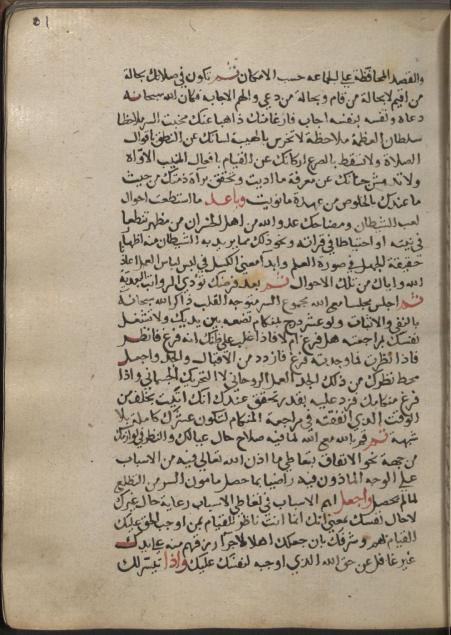 والقصد المحافظة على الجماعه حسب الامكان ثم تكون في صلاتك بحالة
من اقيم لا بحالة من قام وبحالة من دعي والهم الاجابة فكان الله سبحانه
دعاه وبنفسه اجاب فان غايتك ذاهبا عنك مخبت السر ملاحظا
سلطان العظمة ملاحظة لا تخرس بالهيبة لسانك عن النطق باقوال
الصلاة ولا تسقط بالصرع اركانك عن القيام بافعال المنيب الاواه
ولا تدهش جنانك عن معرفة ما اديت وتحقق براءة ذمتك من حيث
ما عندك بالخلوص من عهدة ما نويت وباعد ما استطعت احوال
لعب الشيطان ومضاحك عدو الله من اهل الخسران من مظهر تنطعا
في نيته او احتياطا في قرائه ونحو ذلك مما يريد به الشيطان منه اظهار
حقيقة الجهل في صورة العلم وابدا معنى الكسل في لبس لباس العمل اعاذنا
الله واياك من تلك الاحوال ثم بعد فرضك تؤدي الرواتب البعدية
ثم اجلس مجلسا مع الله مجموع السر متوجه القلب ذاكرا لله سبحانه
بالنفي والاثبات ولو عشر درج بمنكام تضعه بين يديك ولا تشتغل
نفسك بمراجعته هل فرغ ام لا فاذا غلب على ظنك انه فرغ فانظر
فاذا نظرت فما وجدته فرغ فازدد من الاقبال والجد واجعل
محط نظرك من ذلك الجد العمل الروحاني لا التحريك الجسماني واذا
فرغ منكامك فزد عليه بقدر تحقق عندك انك اتيت بخلف من
الوقت الذي انفقته في مراجعة المنكام لتكون عشرك كاملة بلا
شبهة ثم قم بالله مع الله لما فيه صلاح حال عيالك والنظر في لوازمك
من جهة نحو الانفاق بتعاطي ما اذن الله تعالى فيه من الاسباب
على الوجه الماذون فيه راضيا بما حصل مامون السر من التطلع
لما لم يحصل واجعل اهم الاسباب في تعاطي الاسباب رعاية حال غيرك
لا حال نفسك بمعنى انك انما انت ناظر للقيام بمن اوجب الحق عليك
القيام بهم وشرفك بان جعلك اهلا لاجراء رزقهم منه على يدك
غير غافل عن حق الله الذي اوجبه لنفسك عليك واذا تيسر لك